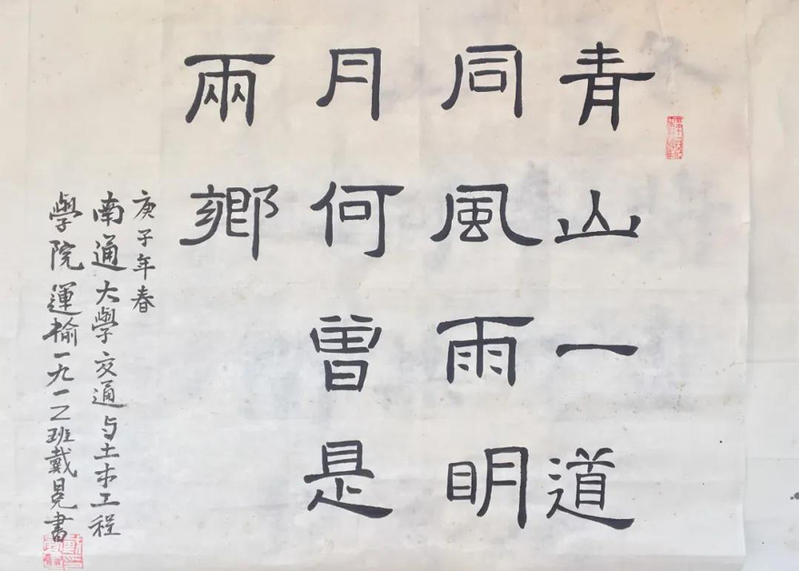 青山一道
同風雨明
月何曾是
兩鄉
庚子年春
南通大學交通与土木工程
學院運輸一九一乙班戴晃書